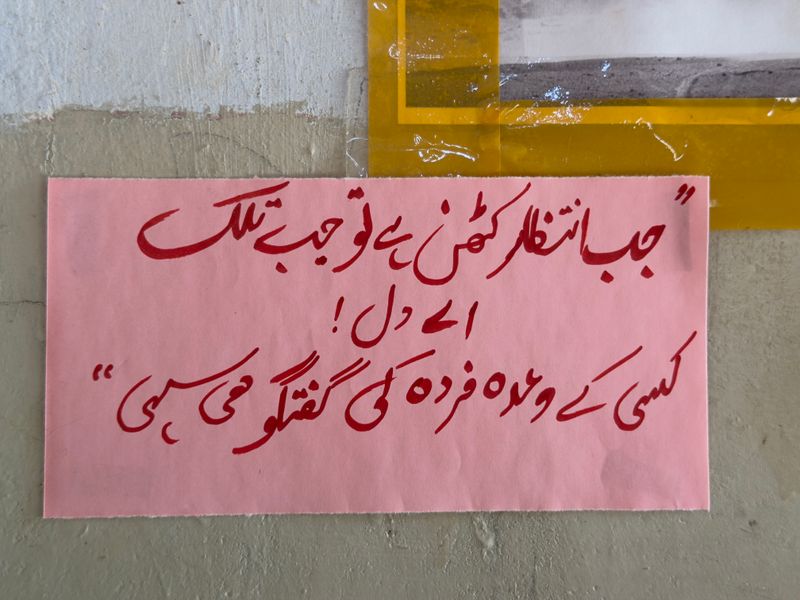 "جب انتظار کٹھن ہے تو جب تلک
اے دل!
کسی کے وعدہ فردہ کی گفتگو ھی سہی"